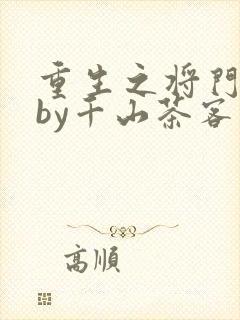 重生之将門
by千山茶客
高順